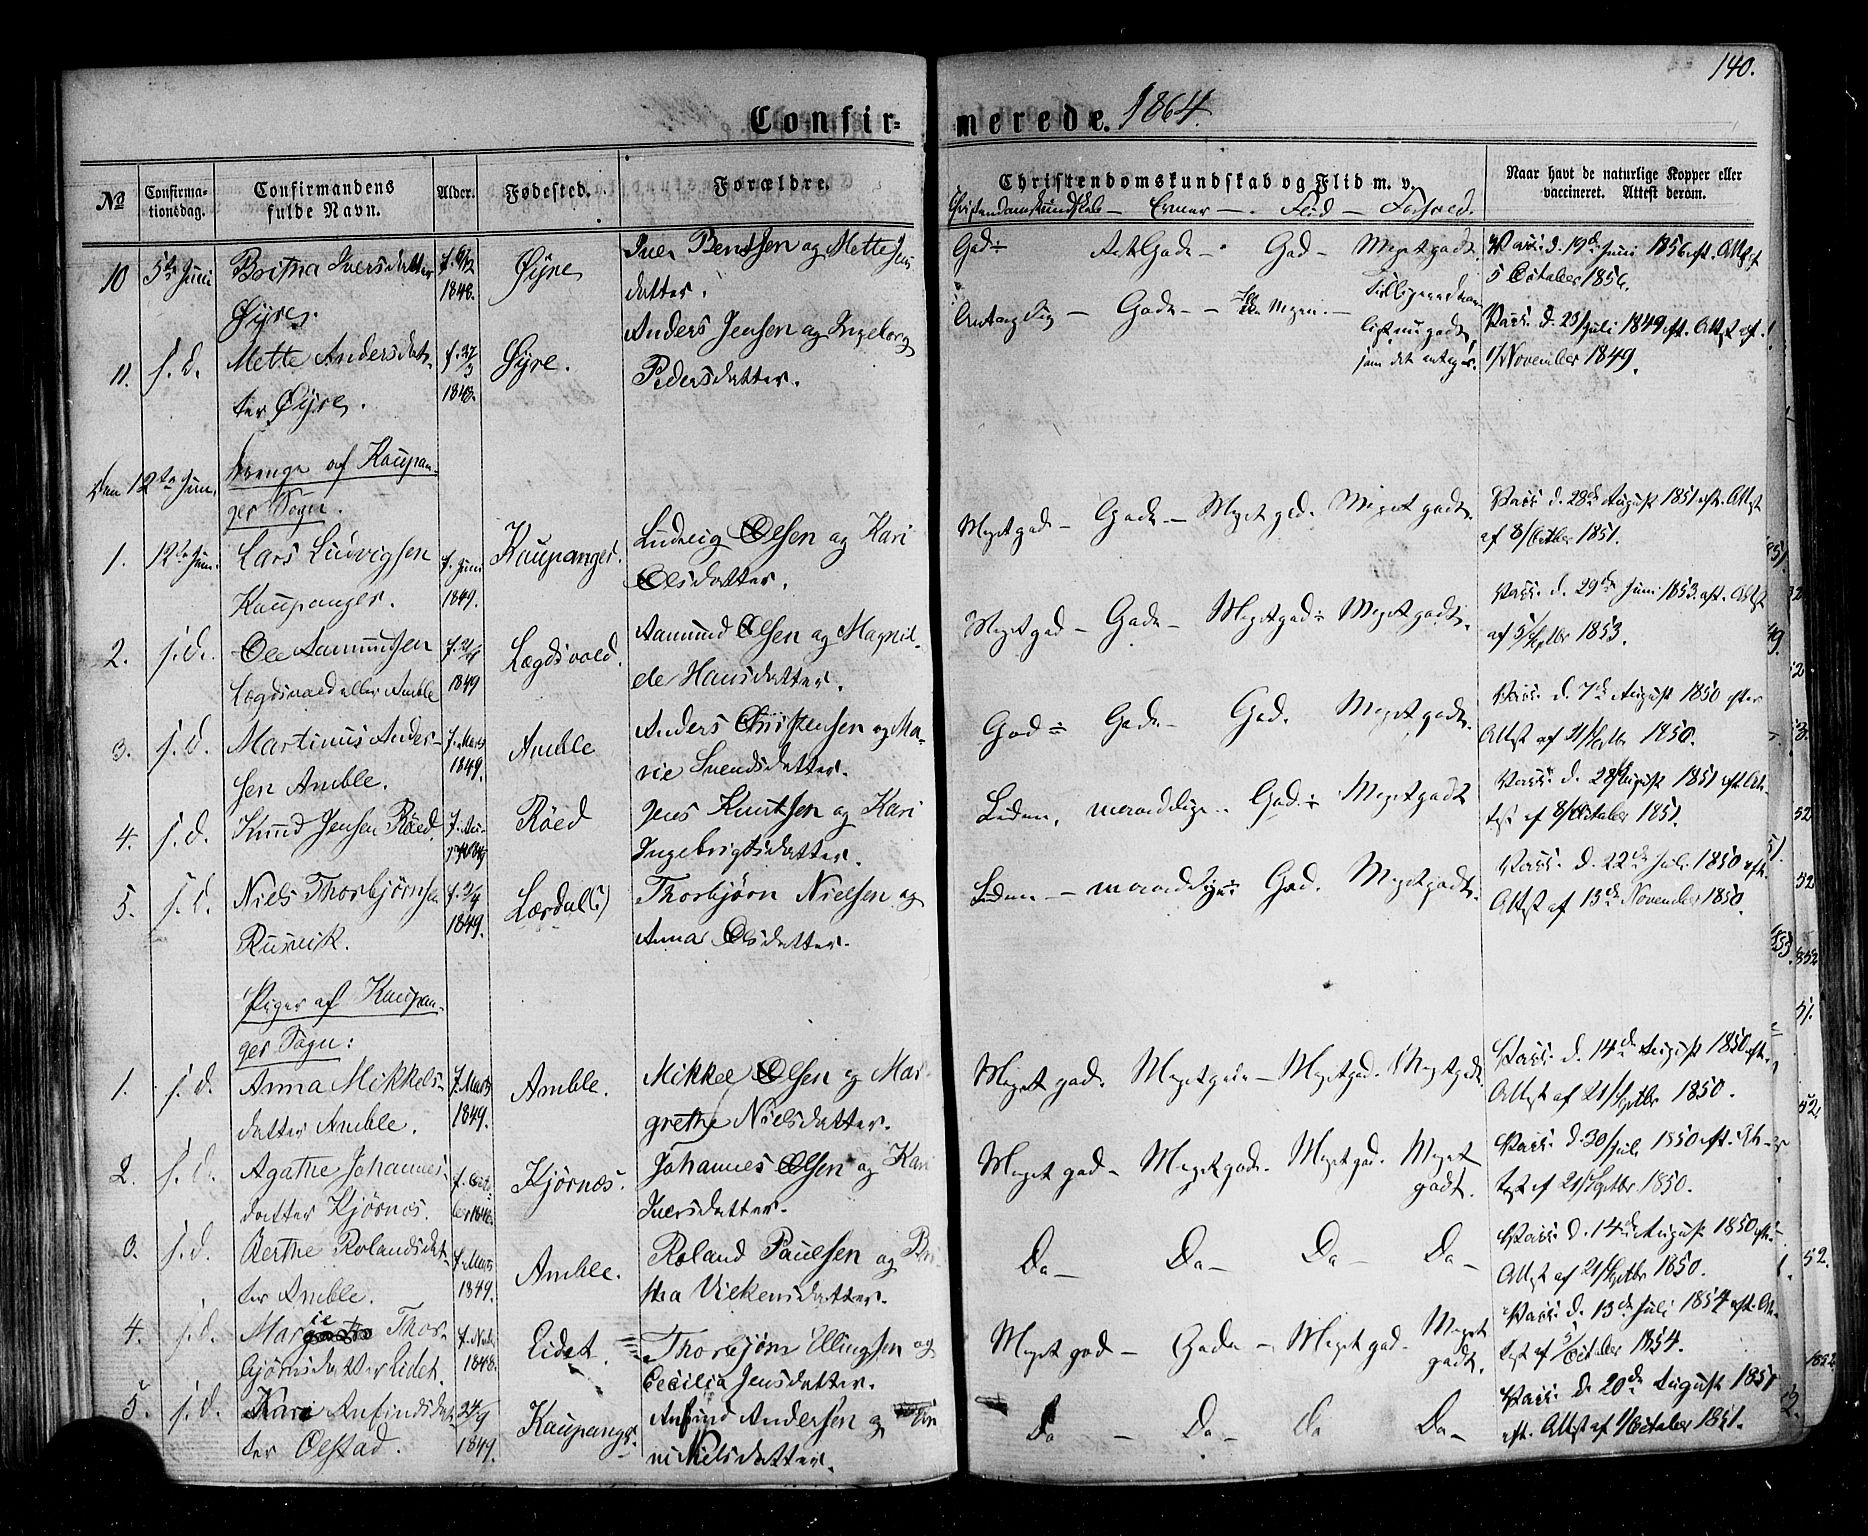 140.
Confirmerede. 1864.
No
Confirmationsdag.
Confirmandens fulde Navn.
Alder.
Fødested.
Forældre.
Christendomskundskab og Flid m. v.
Christendomskundskab — Evner — Flid — Forhold.
Naar havt de naturlige Kopper eller vaccineret. Attest derom.
10 5te Juni Britha Iversdatter Øyre 1848. Øyre Iver Bentsen og Mette Jensdatter. God Godt Vacc. d. 19de Juni 1856 eft. Attest 5 October 1856.
11. s. d. Mette Andersdatter Øyre. f. 27/3 1848. Øyre. Anders Jensen og Ingeborg Pedersdatter. Antagelig — Gode — Vacc. d. Juli 1849 eft. Attest af November 1849.
Den 12te Juni.
Drenge af Kaupanger Sogn.
1. 12te Juni. Lars Ludvigsen Kaupanger. f. Juni 1849. Kaupanger. Ludvig Olsen og Kari Olsdatter. Meget god — Gode — Meget god. Meget godt. Vacc. d. 28de August 1851 eft. Attest af 8/October 1851.
2. s. d. Ole Aamundsen Lægdsvold eller Amble 1849 Lægdsvold. Aamund Olsen og Magnilde Hansdatter. Meget god — Gode — Meget god Meget godt. Vacc. d. 29de Juni 1853. eft. Attest af 5/Septbr 1853.
3. s. d. Martinus Andersen Amble. f. Marts 1849. Amble Anders Christensen og Marie Svendsdatter. God Gode — God. Meget godt. Vacc. d. 7de August 1850 efter Attest af 21/Septbr 1850.
4. s. d. Knud Jensen Røed. Røed Jens Knutsen og Kari Ingebrigtsdatter. Liden, maadelige God. Meget godt Vacc. d. 28/August 1851 eft. Attest af 8/October 1851.
5. s. d. Niels Thorbjørnsen Rusvik. 1849. Lærdal(?) Thorbjørn Nielsen og Anna Olsdatter. Liden — maadelige God. Meget godt. Vacc. d. 22de Juli 1850 eft. Attest af 13de November 1850.
Piger af Kaupanger Sogn:
1. s. d. Anna Mikkelsdatter Amble. f. Marts 1849. Amble. Mikkel Olsen og Margrethe Nielsdatter. Meget god. Meget gode — Meget god. Meget godt. Vacc. d. 14de August 1850 eft. Attest af 21/Septbr 1850.
2. s. d. Agathe Johannesdatter Kjørnes. f. October 1848. Kjørnæs. Johannes Olsen og Kari Iversdatter. Meget god — Meget gode. Meget god. Meget godt. Vacc. d. 30/Juli 1850 eft. Attest af 21/Septbr 1850.
3. s. d. Berthe Rolandsdatter Amble. f. Marts 1849. Amble. Roland Paulsen og Britha Vickensdatter. Do — Do — Do — Do — Vacc. d. 14de August 1850 eft. Attest af 21/Septbr 1850.
4. s. d. Marie Thorbjørnsdatter Eidet. 1848. Eidet. Thorbjørn Ellingsen og Cecilia Jensdatter. Meget god — Gode — Meget god. Meget godt. Vacc. d. 13de Juli 1854 eft. Attest af 5/October 1854.
5. s. d. Kari Anfindsdatter Ølstad. 24/9 1849. Kaupanger. Anfind Andersen og Nielsdatter. Do — Do — Do Do — Vacc. d. 20de August 1851 eft. Attest af 1/October 1851.